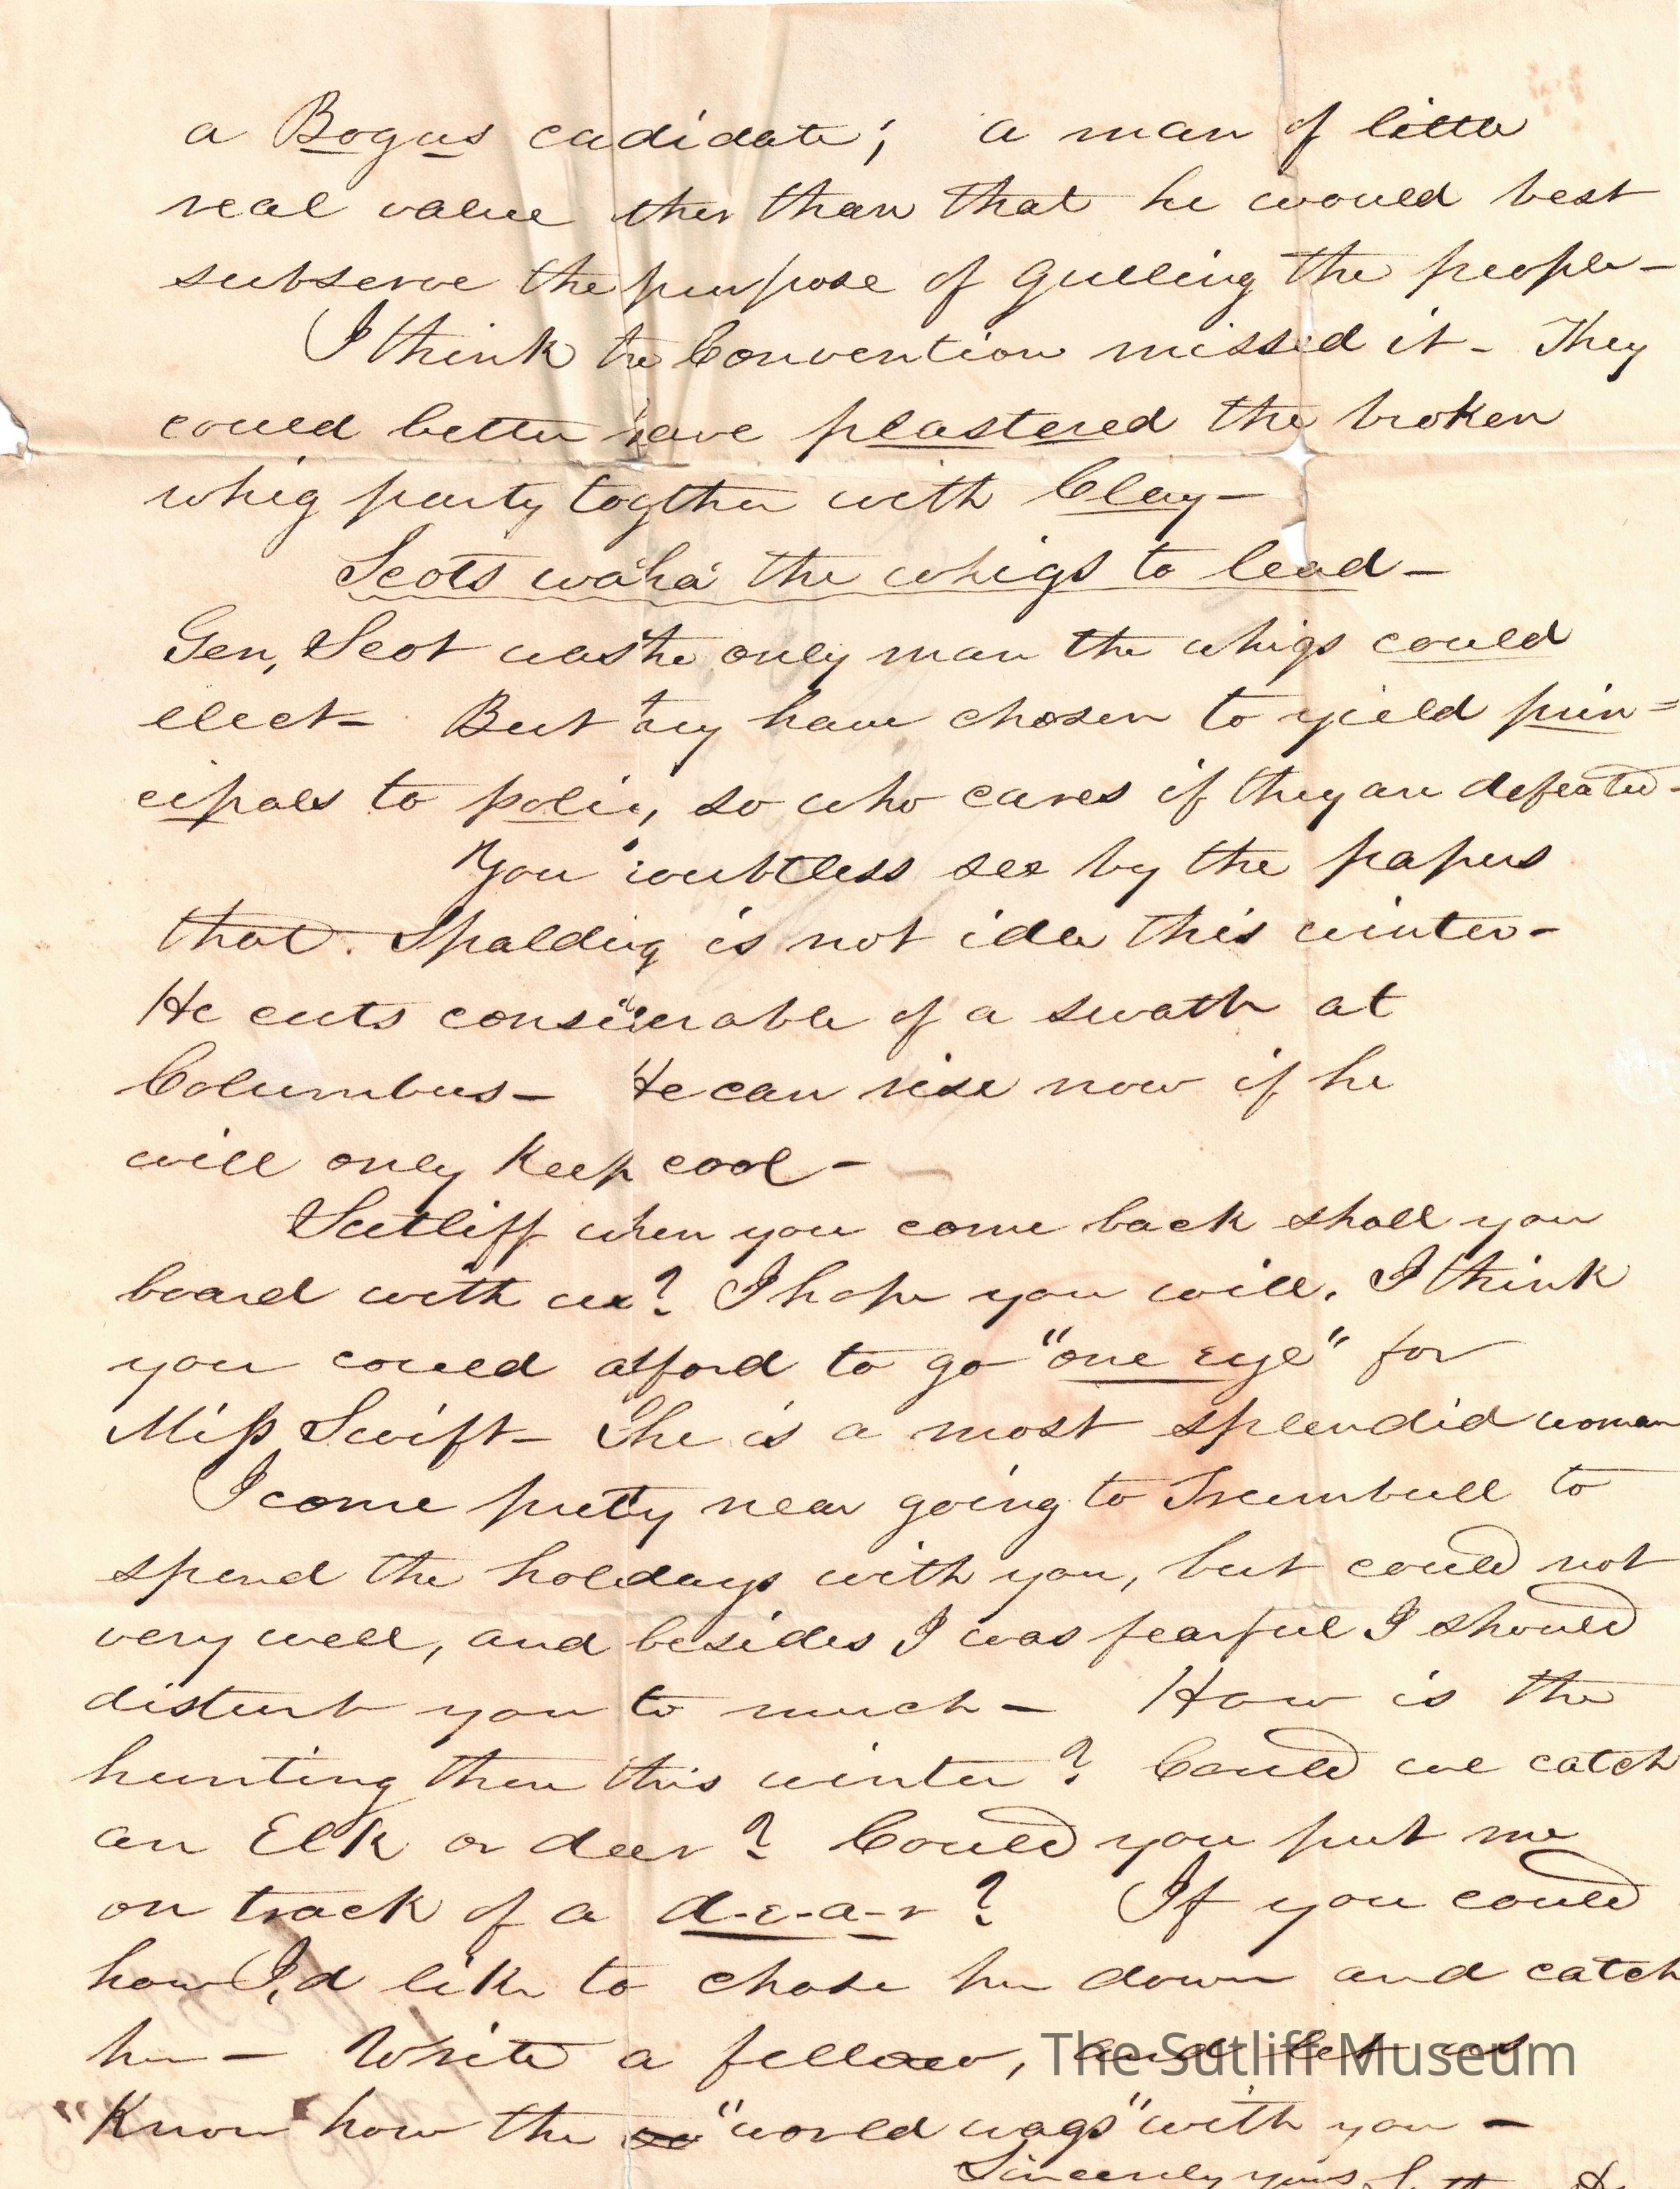 a Bogus cadidate; a man of little
real value ther than that he would best
subserve the purpose of gulling the people-
I think the Convention missed it- They
could better have plastered the broken
whig party togther with Clay-
Scots wa'ha' the whigs to lead-
Gen, Scot was the only man the whigs could
elect- But they have chosen to yield prin=
cipals to policy, so who cares if they are defeated-
You doubtless see by the papers
that Spalding is not idle this winter-
He cuts considerable of a swath at
Columbus- He can rise now if he
will only keep cool-
Sutliff when you come back shall you
board with us? I hope you will. I think
you could afford to go "one eye" for
Miss Swift- She is a most splendid woman
I come pretty near going to Trumbull to
spend the holidays with you, but could not
very well, and besides I was fearful I should
disturb you to much- How is the
hunting there this winter? Could we catch
an Elk or deer? Could you put me
on track of a d-e-a-r? If you could
how I,d like to chase her down and catch
her- Write a fellow, and let us
Know how the "world wags" with you-
Sincerely yours
The Sutliff Museum